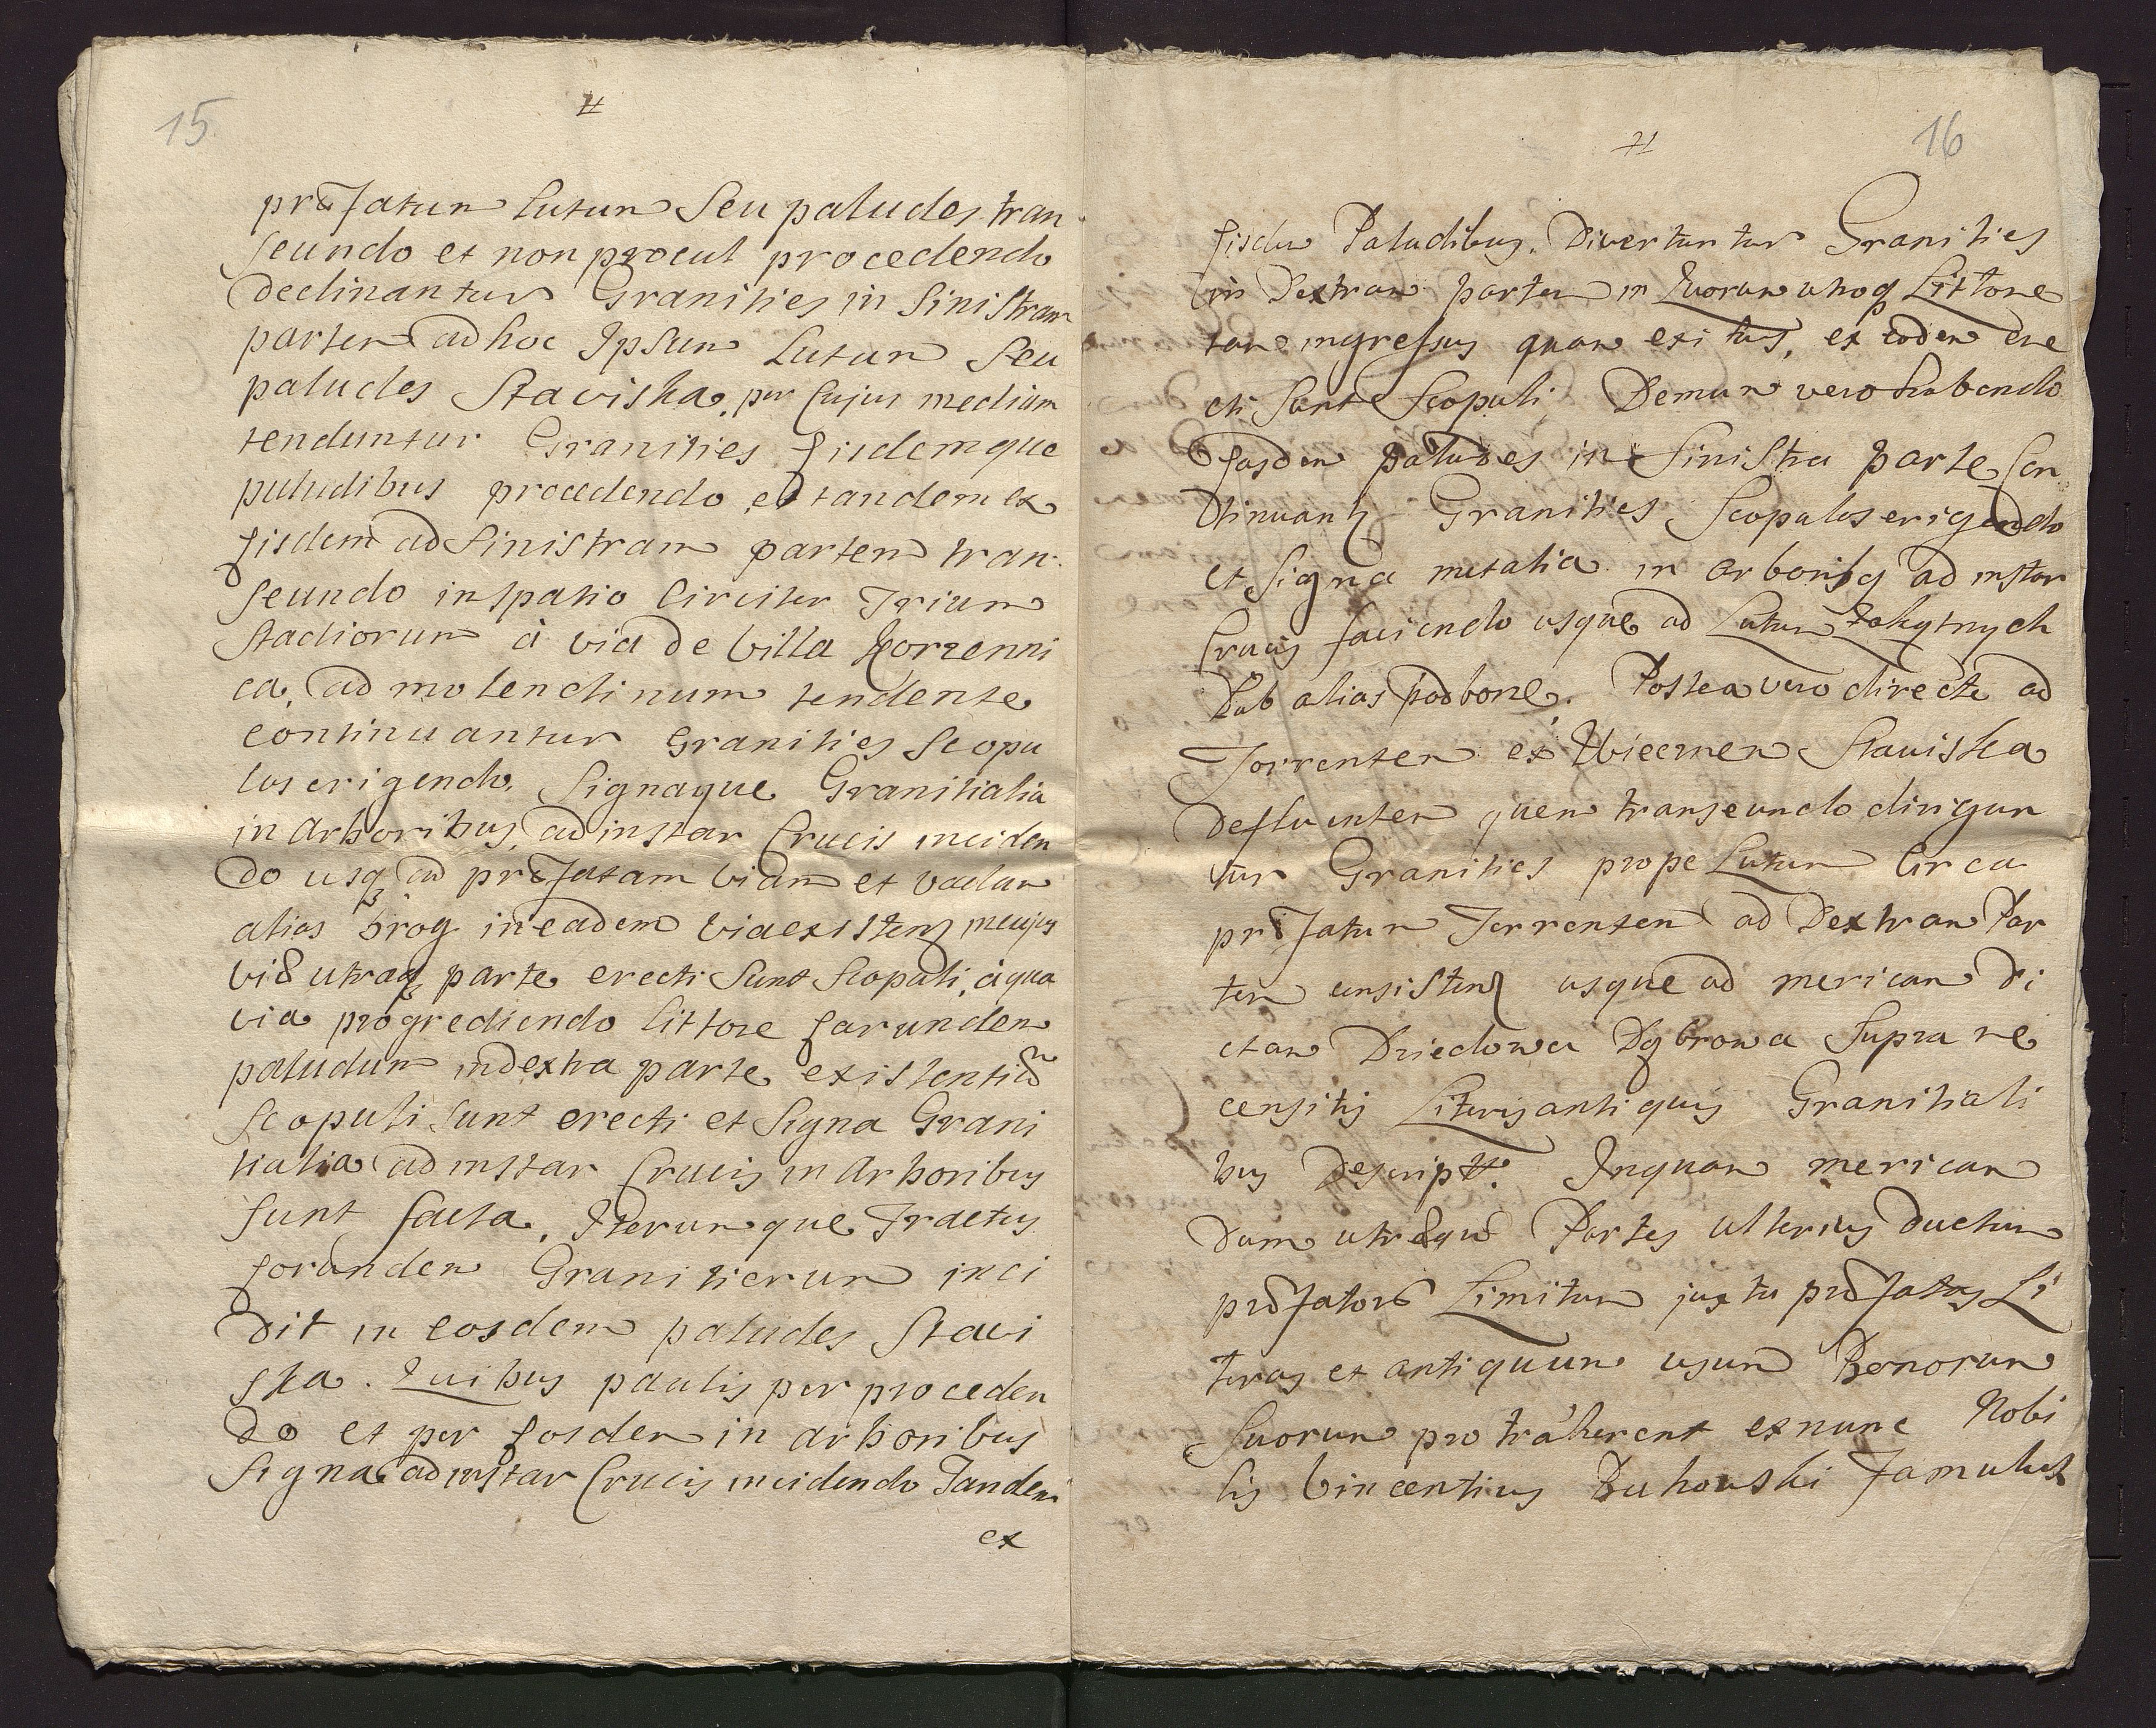 15
præfatum Lutum Seu paludes tran
seundo et non procul procedendo
declinantur Granities in Sinistram
partem ad hoc Ipsum Lutum Seu
paludes Staviska, per Cujus medium
tenduntur Granities Eisdemque
paludibus procedendo, et tandem ex
Eisdem ad Sinistram partem tran
seundo in spatio Circiter Trium
Stadiorum à via de Villa Korzenni
ca, ad molendinum tendente
continuantur Granities Scopu
los erigendo, Signaque Granitialia
in Arboribus, ad instar Crucis inciden
do usq ad præfatam viam et vadum
alias brog in eadem via existens in cujus
viæ utraq parte erecti Sunt Scopuli, à qua
via progrediendo Littore Earundem
paludum in dextra parte existentium
Scopuli Sunt erecti et Signa Grani
tialia ad instar Crucis in Arboribus
Sunt facta, Iterumque Tractus
Earundem Granitierum inci
dit in easdem paludes Stavi
ska. Quibus paulisper proceden
do et per Easdem in arboribus
Signa ad instar Crucis incidendo Tandem
ex
16
Eisdem Paludibus, Divertuntur Granities
in Dextram partem in Quorum utroq Littore
tam ingressus quam exitus, ex eodem ere
cti Sunt Scopuli, Demum vero habendo
Easdem paludes in Sinistra parte Con
tinuant Granities Scopulos erigendo
et Signa metalia in arboribq ad instar
Crucis faciendo usque ad Lutum
Dab alias Podbone. Postea vero directe ad
Torrentem ex Wiecmen Staviska
defluentem quem transeundo dirigun
tur Granities prope Lutum Circa
præfatum Torrentem ad Dextram Par
tem consistens usque ad mericam di
ctam Dziedowa Dąbrowa Supra re
censitis Literis antiquis Granitiali
bus Descript. In quam mericam
Dum utræque Partes ulterius ductum
præfator Limitum juxta præfatas Li
teras et antiquum usum Bonorum
Suorum protraherent ex nunc Nobi
lis Vincentius Bukowski Famulus